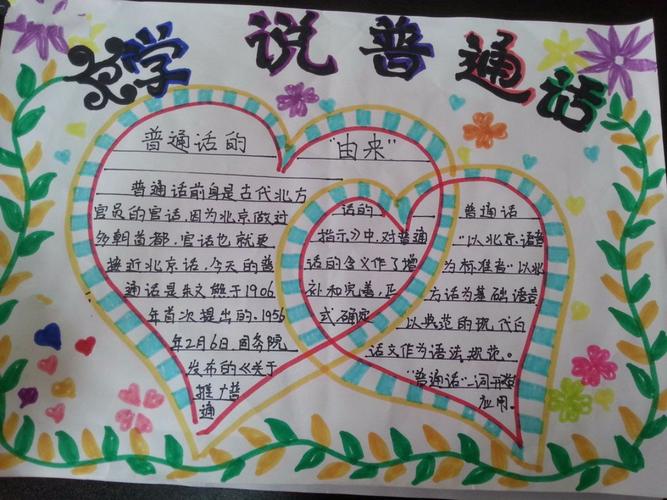 学说普通话
普通话的 "由来"
普通话前身是古代北方
官员的官话,因为北京做过
多朝首都,官话也就更
接近北京话,今天的普
通话是朱文熊于1906
年首次提出的.1956
年2月6日,国务院
发布的《关于
推广普
通
话的
指示》中,对普通
话的含义作了增
补和完善,正
式确定
普通话
"以北京语音
为标准音"以北
方话为基础语言
以典范的现代白
话文作为语法规范。
"普通话"一词开始
应用.